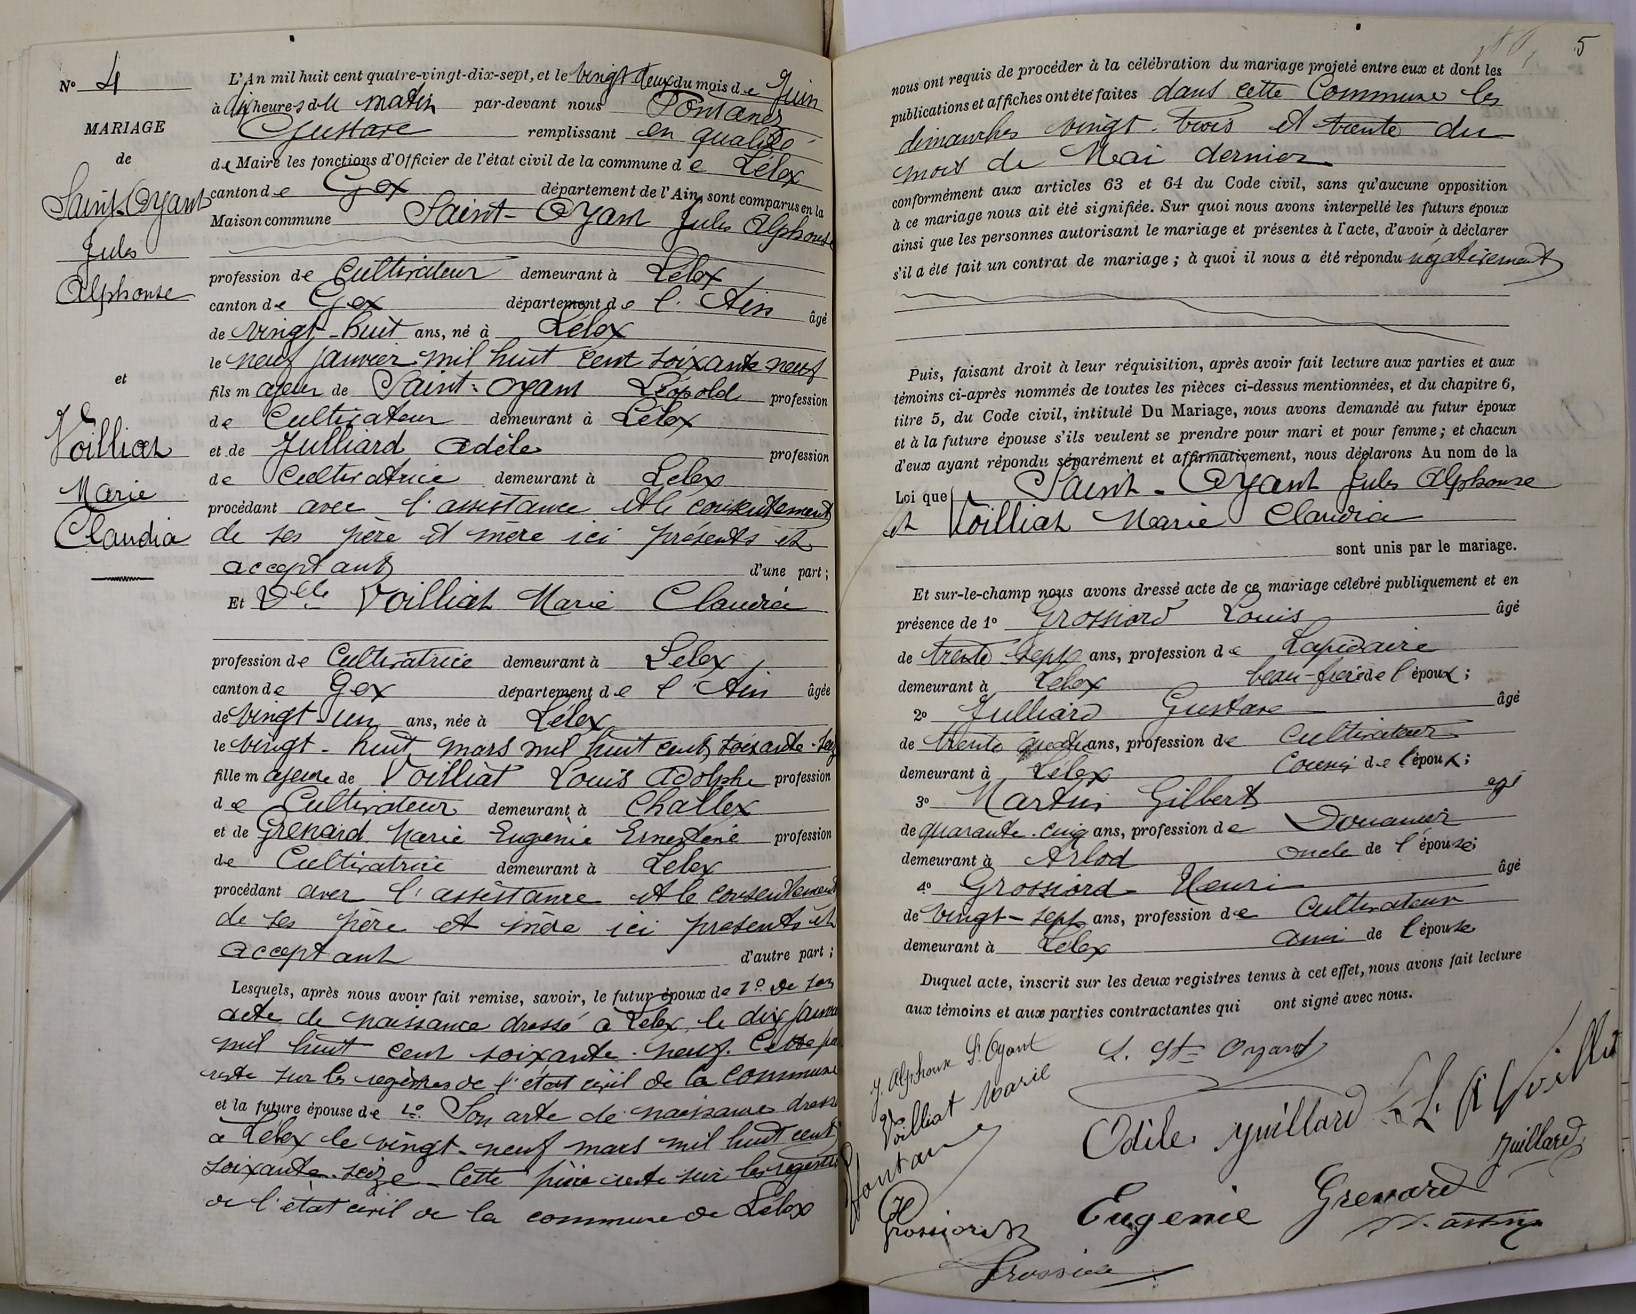 N° 4
MARIAGE
de
Saint-Oyant
Jules
Alphonse
et
Voilliat
Marie
Claudia
L'An mil huit cent quatre-vingt-dix-sept, et le vingt deux du mois de Juin
à dix heures du matin par-devant nous Pontanez
Gustave remplissant en qualité
de Maire les fonctions d'Officier de l'état civil de la commune de Lélex
canton de Gex département de l'Ain, sont comparus en la
Maison commune Saint-Oyant Jules Alphonse
profession de Cultivateur demeurant à Lélex
canton de Gex département de l'Ain âgé
de vingt-huit ans, né à Lélex
le neuf janvier mil huit cent soixante neuf
fils majeur de Saint-Oyant Léopold profession
de Cultivateur demeurant à Lélex
et de Julliard Adèle profession
de Cultivatrice demeurant à Lélex
procédant avec l'assistance et le consentement
de ses père et mère ici présents et
acceptants d'une part ;
Et Dlle Voilliat Marie Claudia
profession de Cultivatrice demeurant à Lélex
canton de Gex département de l'Ain âgée
de vingt-un ans, née à Lélex
le vingt-huit mars mil huit cent soixante-seize
fille majeure de Voilliat Louis Adolphe profession
de Cultivateur demeurant à Challex
et de Grenard Marie Eugénie Ernestine profession
de Cultivatrice demeurant à Lélex
procédant avec l'assistance et le consentement
de ses père et mère ici présents et
acceptant d'autre part ;
Lesquels, après nous avoir fait remise, savoir, le futur époux de 1° de son
acte de naissance dressé à Lélex le dix janvier
mil huit cent soixante-neuf. Cette pièce
reste sur les registres de l'état civil de la commune
et la future épouse de 1° Son acte de naissance dressé
à Lélex le vingt-neuf mars mil huit cent
soixante-seize. Cette pièce reste sur les registres
de l'état civil de la commune de Lélex
5
nous ont requis de procéder à la célébration du mariage projeté entre eux et dont les
publications et affiches ont été faites dans cette Commune les
dimanches vingt-trois et trente du
mois de Mai dernier
conformément aux articles 63 et 64 du Code civil, sans qu'aucune opposition
à ce mariage nous ait été signifiée. Sur quoi nous avons interpellé les futurs époux
ainsi que les personnes autorisant le mariage et présentes à l'acte, d'avoir à déclarer
s'il a été fait un contrat de mariage ; à quoi il nous a été répondu négativement
Puis, faisant droit à leur réquisition, après avoir fait lecture aux parties et aux
témoins ci-après nommés de toutes les pièces ci-dessus mentionnées, et du chapitre 6,
titre 5, du Code civil, intitulé Du Mariage, nous avons demandé au futur époux
et à la future épouse s'ils veulent se prendre pour mari et pour femme ; et chacun
d'eux ayant répondu séparément et affirmativement, nous déclarons Au nom de la
Loi que Saint-Oyant Jules Alphonse
et Voilliat Marie Claudia
sont unis par le mariage.
Et sur-le-champ nous avons dressé acte de ce mariage célébré publiquement et en
présence de 1° Grossiord Louis âgé
de trente-sept ans, profession de Lapidaire
demeurant à Lélex beau-frère de l'époux ;
2° Julliard Gustave âgé
de trente quatre ans, profession de Cultivateur
demeurant à Lélex Cousin de l'époux ;
3° Martin Gilbert âgé
de quarante-cinq ans, profession de Douanier
demeurant à Arlod oncle de l'épouse ;
4° Grossiord Henri âgé
de vingt-sept ans, profession de Cultivateur
demeurant à Lélex ami de l'épouse
Duquel acte, inscrit sur les deux registres tenus à cet effet, nous avons fait lecture
aux témoins et aux parties contractantes qui ont signé avec nous.
J. Alphonse St Oyant
L. St Oyant
Voilliat Marie
Odile Juillard
L A Voilliat
Juillard
Eugenie Grenard
Martin
Grossiord